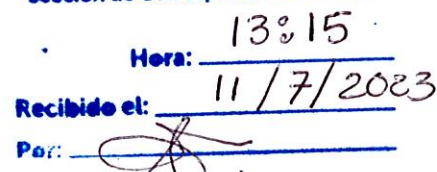 Hora: 13:15
Recibido el: 11/7/2023
Por: